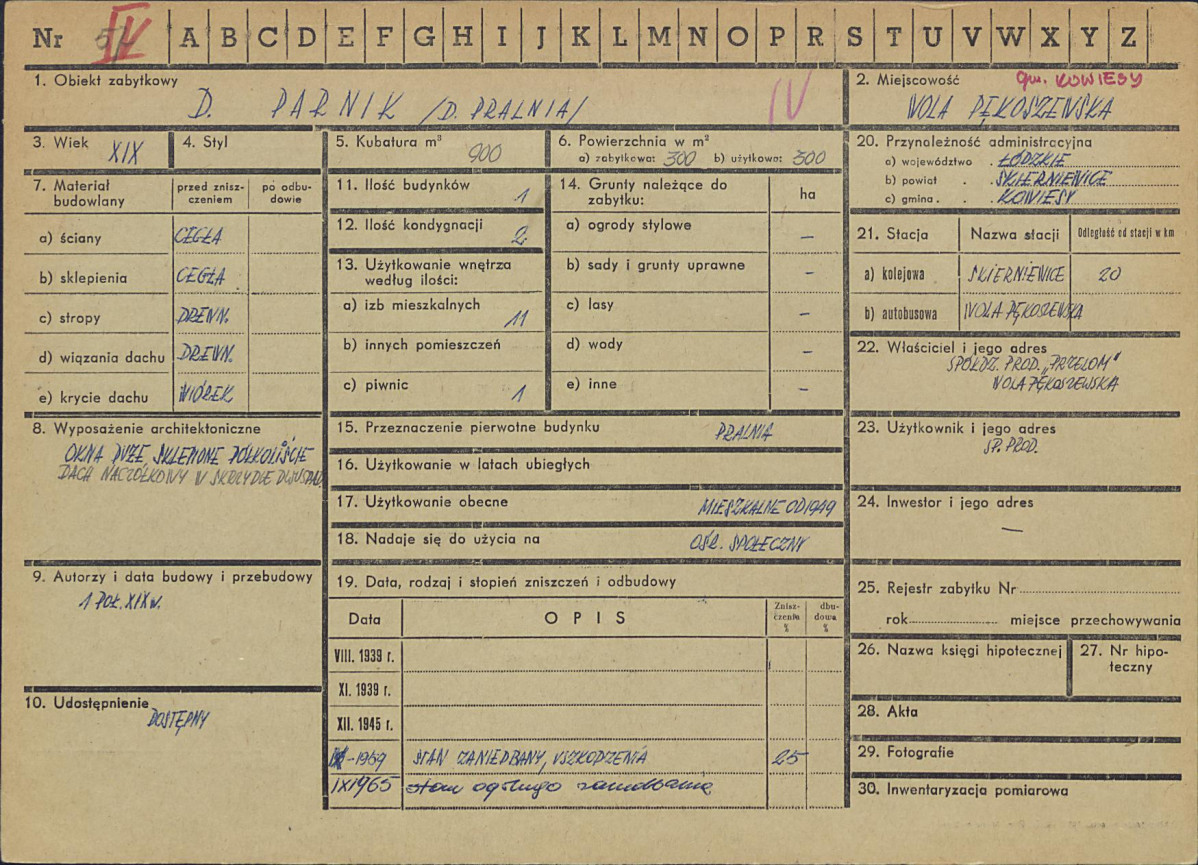 Nr IV A B C D E F G H I J K L M N O P R S T U V W X Y Z
1. Obiekt zabytkowy
D. PARNIK /D. PRALNIA/ IV
2. Miejscowość gm. KOWIESY
WOLA PĘKOSZEWSKA
3. Wiek XIX
4. Styl
5. Kubatura m³ 900
6. Powierzchnia w m²
a) zabytkowa: 300 b) użytkowa: 300
20. Przynależność administracyjna
a) województwo . ŁÓDZKIE
b) powiat . . SKIERNIEWICE
c) gmina . . KOWIESY
7. Materiał budowlany
przed zniszczeniem
po odbudowie
a) ściany CEGŁA
b) sklepienia CEGŁA
c) stropy DREWN.
d) wiązania dachu DREWN.
e) krycie dachu WIÓREK
11. Ilość budynków 1
12. Ilość kondygnacji 2
13. Użytkowanie wnętrza
według ilości:
a) izb mieszkalnych 11
b) innych pomieszczeń
c) piwnic 1
14. Grunty należące do
zabytku:
ha
a) ogrody stylowe –
b) sady i grunty uprawne –
c) lasy –
d) wody –
e) inne –
21. Stacja
Nazwa stacji
Odległość od stacji w km
a) kolejowa SKIERNIEWICE 20
b) autobusowa WOLA PĘKOSZEWSKA
22. Właściciel i jego adres
SPÓŁDZ. PROD. „PRZEŁOM"
WOLA PĘKOSZEWSKA
8. Wyposażenie architektoniczne
OKNA DUŻE SKLEPIONE PÓŁKOLIŚCIE
DACH NACZÓŁKOWY W SKRZYDLE DWUSPAD.
15. Przeznaczenie pierwotne budynku PRALNIA
16. Użytkowanie w latach ubiegłych
17. Użytkowanie obecne MIESZKALNE OD 1949
18. Nadaje się do użycia na OŚR. SPOŁECZNY
23. Użytkownik i jego adres
SP. PROD.
24. Inwestor i jego adres
—
9. Autorzy i data budowy i przebudowy
1 POŁ. XIX w.
10. Udostępnienie
DOSTĘPNY
19. Data, rodzaj i stopień zniszczeń i odbudowy
Data
OPIS
Zniszczenia %
dbudowa %
VIII. 1939 r.
XI. 1939 r.
XII. 1945 r.
-1959 STAN ZANIEDBANY, USZKODZENIA 25
IX 1965 stan ogólnego zaniedbania
25. Rejestr zabytku Nr
rok miejsce przechowywania
26. Nazwa księgi hipotecznej
27. Nr hipoteczny
28. Akta
29. Fotografie
30. Inwentaryzacja pomiarowa